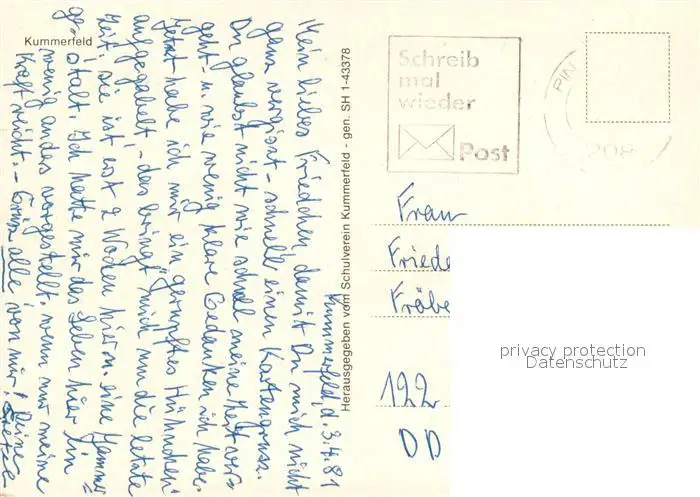 Kummerfeld
Kummerfeld, d. 3.4.81
Mein liebes Friedchen, damit Du mich nicht
ganz vergisst – schnell einen Kartengruss.
Du glaubst nicht wie schnell meine Zeit ver-
geht – u. wie wenig klare Gedanken ich habe.
Jetzt habe ich mir ein gerupftes Hühnchen
aufgegabelt, – das bringt mich um die letzte
Zeit, sie ist erst 2 Wochen hier u. eine Jammer=
ge=stalt. Ich hatte mir das Leben hier ein
wenig anders vorgestellt, wenn nur meine
Kraft reicht. – Grüss alle von mir! Deine
Herausgegeben vom Schulverein Kummerfeld - gen. SH 1-43378
Schreib
mal
wieder
Post
PIN
208
Frau
Friede
Fröbe
122
DD
privacy protection
Datenschutz